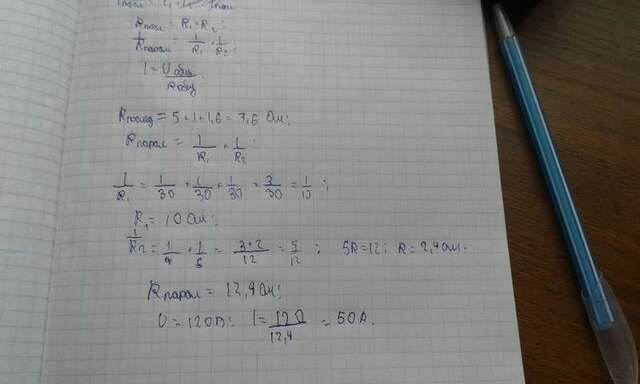 Rпосл = R₁+R₂;
1/Rпарал = 1/R₁ + 1/R₂;
I = Uобщ/Rобщ
Rпослед = 5+1+1,6 = 7,6 Ом;
Rпарал = 1/R₁ + 1/R₂
1/R₁ = 1/30 + 1/30 + 1/30 = 3/30 = 1/10;
R₁ = 10 Ом;
1/R₂ = 1/4 + 1/6 = 3+2/12 = 5/12; 5R=12; R=2,4 Ом.
Rпарал = 12,4 Ом;
U = 120В; I = 120/12,4 = 50А.